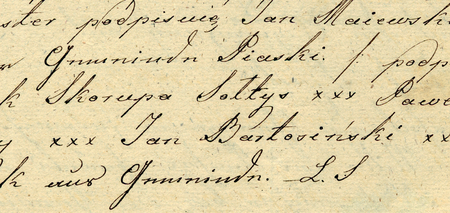 ster podpisuię Jan Maiewsk
Gmunindn Piaski. /: podp
k Skorupa Sołtys xxx Pawe
y xxx Jan Bartosiński xx
k aus Gmunindn. L. S